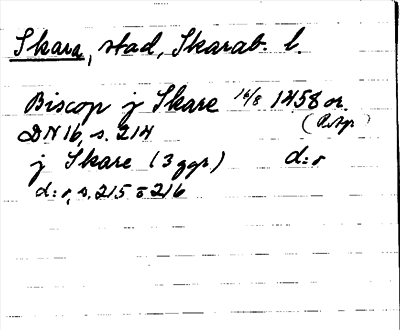 Skara, stad, Skarab. l.
Biscop j Skare 16/8 1458 or.
DN 16, s. 214 (Rskp)
j Skare (3 ggr) d:o
d:o, s. 215 o 216